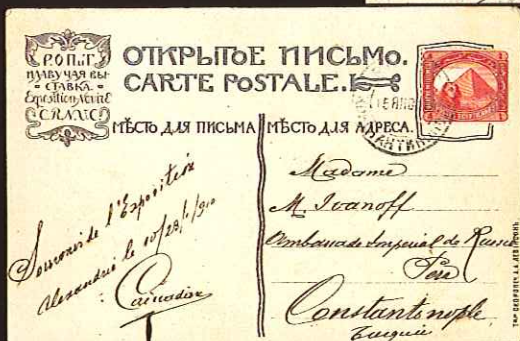 Р.О.П.иТ
ПЛАВУЧАЯ ВЫ-
СТАВКА.
Exposition Navale
ОТКРЫТОЕ ПИСЬМО.
CARTE POSTALE.
МѢСТО ДЛЯ ПИСЬМА
МѢСТО ДЛЯ АДРЕСА.
Souvenir de l'Exposition
Alexandrie le 10/23/1/910
Madame
M. Ivanoff
Ambassade Imperial de Russie
Pera
Constantinople
Turquie